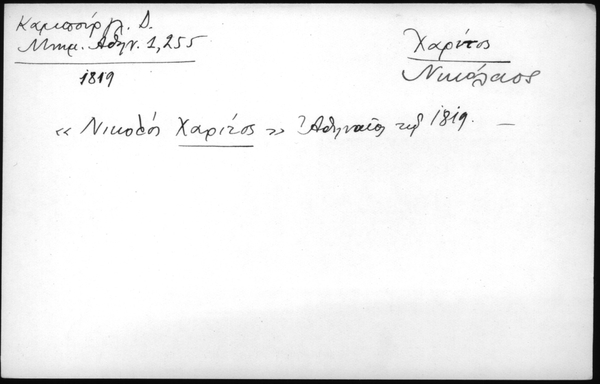 Καμπούρογλ. Δ.
Μνημ. Αθην. 1,255
1819
Χαρίτος
Νικόλαος
« Νικολός Χαρίτος » Ἀθηναῖος τῷ 1819. —